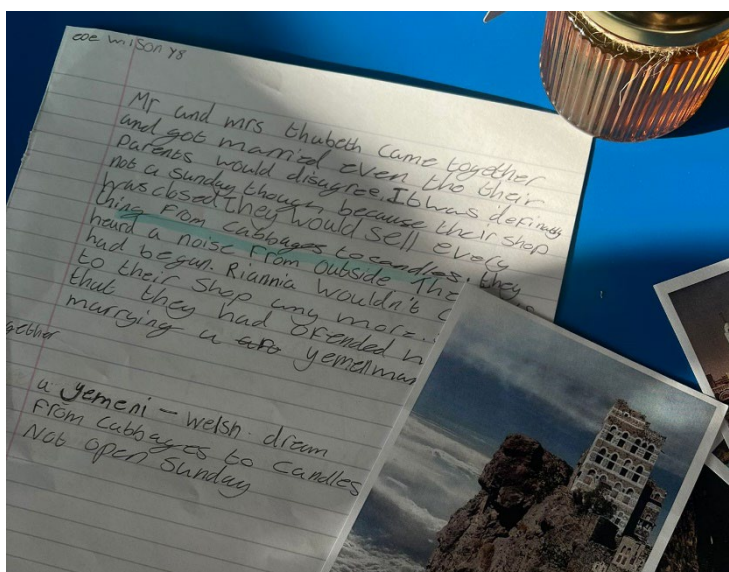 wilson y8
Mr and mrs thubeth came together
and got married even tho their
Parents would disagree. It was definatly
not a sunday though because their shop
was closed. They would sell every
thing from cabbages to candles, they
heard a noise from outside. The
had begun. Riannia wouldn't
to their shop any more.
that they had offended
marrying a yemeliman
gether
a yemeni - welsh dream
From cabbages to candles
Not open Sunday